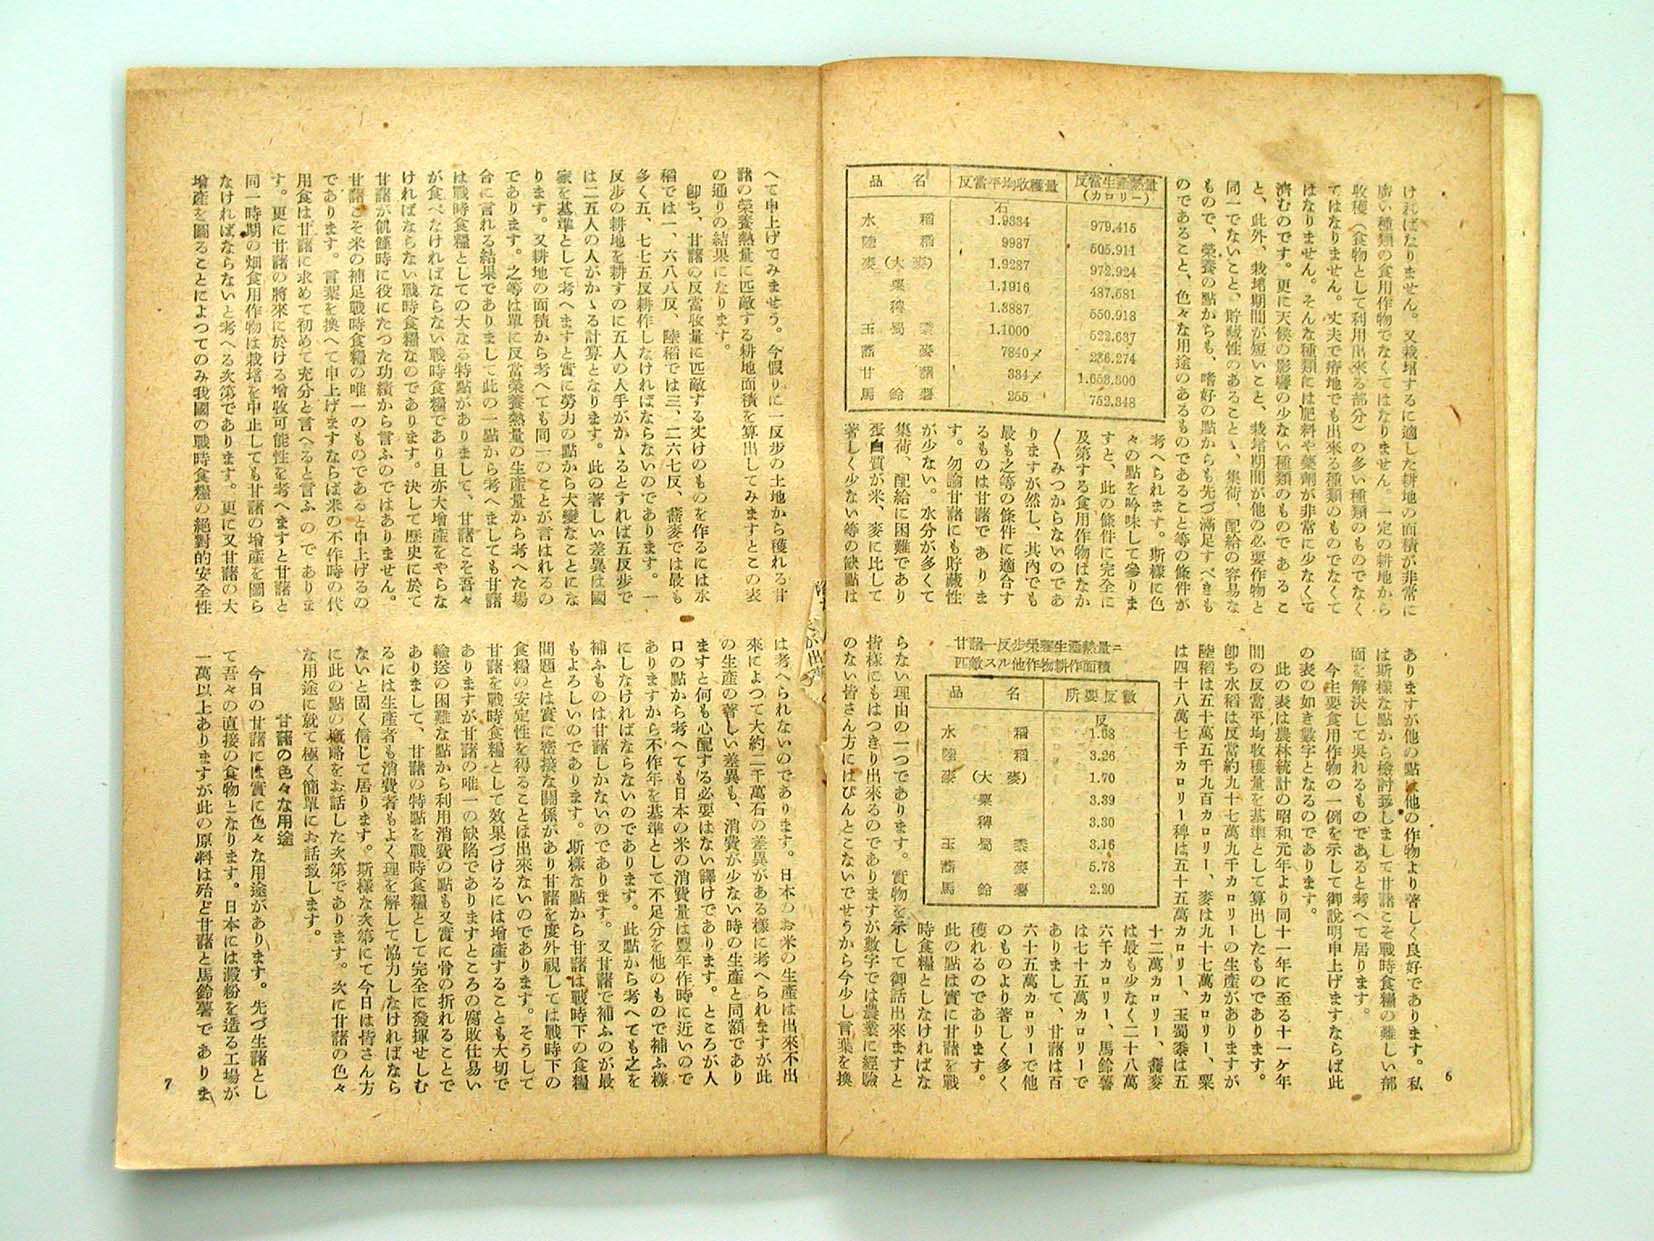 ければなりません。又栽培するに適した耕地の面積が非常に
廣い種類の食用作物でなくてはなりません。一定の耕地から
收穫（食物として利用出來る部分）の多い種類のものでなく
てはなりません。丈夫で瘠地でも出來る種類のものでなくて
はなりません。そんな種類には肥料や藥劑が非常に少なくて
濟むのです。更に天候の影響の少ない種類のものであるこ
と、此外、栽培期間が短いこと、栽培期間が他の必要作物と
同一でないこと、貯藏性のあることゝ、集荷、配給の容易な
もので、榮養の點からも、嗜好の點からも先づ滿足すべきも
のであること、色々な用途のあるものであること等の條件が
品名 反當平均收穫量 反當生產熱量(カロリー)
水稻 石1.9334 979.415
陸稻 9987 505.911
麥(大麥) 1.9287 972.924
粟 1.1916 487.681
稗 1.3887 550.918
玉蜀黍 1.1000 522.637
蕎麥 7840 286.274
甘藷 334〆 1.653.300
馬鈴薯 255 752.348
考へられます。斯樣に色
々の點を吟味して參りま
すと、此の條件に完全に
及第する食用作物はなか
〱みつからないのであ
りますが然し、其内でも
最も之等の條件に適合す
るものは甘藷でありま
す。勿論甘藷にも貯藏性
が少ない。水分が多くて
集荷、配給に困難であり
蛋白質が米、麥に比して
著しく少ない等の缺點は
ありますが他の點は他の作物より著しく良好であります。私
は斯樣な點から檢討致しまして甘藷こそ戰時食糧の難しい部
面を解決して吳れるものであると考へて居ります。
今主要食用作物の一例を示して御說明申上げますならば此
の表の如き數字となるのであります。
此の表は農林統計の昭和元年より同十一年に至る十一ケ年
間の反當平均收穫量を基準として算出したものであります。
卽ち水稻は反當約九十七萬九千カロリーの生產がありますが
陸稻は五十萬五千九百カロリー、麥は九十七萬カロリー、粟
は四十八萬七千カロリー稗は五十五萬カロリー、玉蜀黍は五
甘藷一反步榮養生產熱量ニ
匹敵スル他作物耕作面積
品名 所要反數
水稻 反1.68
陸稻 3.26
麥(大麥) 1.70
粟 3.39
稗 3.30
玉蜀黍 3.16
蕎麥 5.78
馬鈴薯 2.20
十二萬カロリー、蕎麥
は最も少なく二十八萬
六千カロリー、馬鈴薯
は七十五萬カロリーで
ありまして、甘藷は百
六十五萬カロリーで他
のものより著しく多く
穫れるのであります。
此の點は實に甘藷を戰
時食糧としなければな
らない理由の一つであります。實物を示して御話出來ますと
皆樣にもはつきり出來るのでありますが數字では農業に經驗
のない皆さん方にはぴんとこないでせうから今少し言葉を換
6
へて申上げてみませう。今假りに一反步の土地から穫れる甘
藷の榮養熱量に匹敵する耕地面積を算出してみますとこの表
の通りの結果になります。
卽ち、甘藷の反當收量に匹敵する丈けのものを作るには水
稻では一、六八八反、陸稻では三、二六七反、蕎麥では最も
多く五、七七五反耕作しなければならないのであります。一
反步の耕地を耕すのに五人の人手がかゝるとすれば五反步で
は二五人の人がかゝる計算となります。此の著しい差異は國
家を基準として考へますと實に勞力の點から大變なことにな
ります。又耕地の面積から考へても同一のことが言はれるの
であります。之等は單に反當榮養熱量の生產量から考へた場
合に言れる結果でありまして此の一點から考へましても甘藷
は戰時食糧としての大なる特點がありまして、甘藷こそ吾々
が食べなければならない戰時食糧であり且亦大增產をやらな
ければならない戰時食糧なのであります。決して歷史に於て
甘藷が飢饉時に役にたつた功績から言ふのではありません。
甘藷こそ米の補足戰時食糧の唯一のものであると申上げるの
であります。言葉を換へて申上げますならば米の不作時の代
用食は甘藷に求めて初めて充分と言へると言ふのでありま
す。更に甘藷の將來に於ける增收可能性を考へますと甘藷と
同一時期の畑食用作物は栽培を中止しても甘藷の增產を圖ら
なければならないと考へる次第であります。更に又甘藷の大
增產を圖ることによつてのみ我國の戰時食糧の絕對的安全性
は考へられないのであります。日本のお米の生產は出來不出
來によつて大約二千萬石の差異がある樣に考へられますが此
の生產の著しい差異も、消費が少ない時の生產と同額であり
ますと何も心配する必要はない譯けであります。ところが人
口の點から考へても日本の米の消費量は豐年作時に近いので
ありますから不作年を基準として不足分を他のもので補ふ樣
にしなければならないのであります。此點から考へても之を
補ふものは甘藷しかないのであります。又甘藷で補ふのが最
もよろしいのであります。斯樣な點から甘藷は戰時下の食糧
問題とは實に密接な關係があり甘藷を度外視しては戰時下の
食糧の安定性を得ることは出來ないのであります。そうして
甘藷を戰時食糧として效果づけるには增產することも大切で
ありますが甘藷の唯一の缺陷でありますところの腐敗仕易い
輸送の困難な點から利用消費の點も又實に骨の折れることで
ありまして、甘藷の特點を戰時食糧として完全に發揮せしむ
るには生產者も消費者もよく理を解して協力しなければなら
ないと固く信じて居ります。斯樣な次第にて今日は皆さん方
に此の點の槪略をお話した次第であります。次に甘藷の色々
な用途に就て極く簡單にお話致します。
甘藷の色々な用途
今日の甘藷には實に色々な用途があります。先づ生藷とし
て吾々の直接の食物となります。日本には澱粉を造る工場が
一萬以上ありますが此の原料は殆ど甘藷と馬鈴薯でありま
7